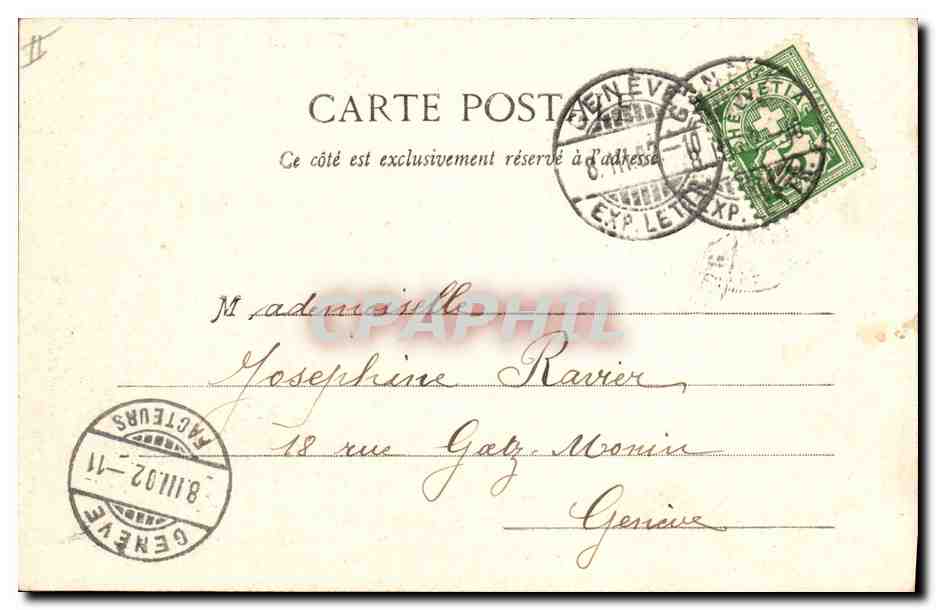 CARTE POSTALE
Ce côté est exclusivement réservé à l'adresse
GENÈVE
8.III.02.-10
EXP. LETTR.
HELVETIA
Mademoiselle
CPAPHIL
Josephine Ravier
18 rue Gatz-Monin
Genève
FACTEURS
8.III.02.-11
GENÈVE